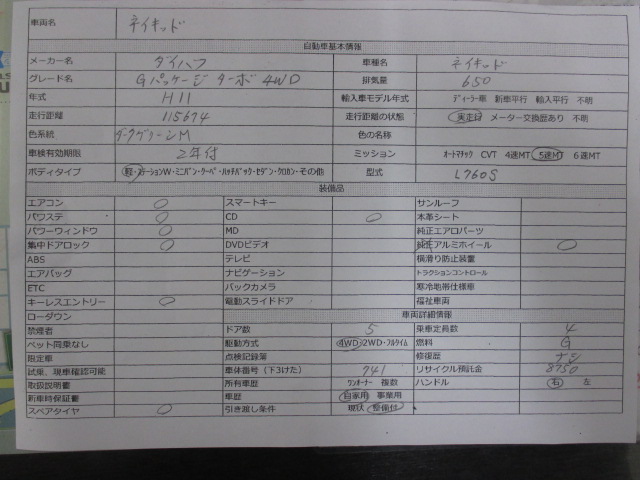 車両名 ネイキッド
自動車基本情報
メーカー名 ダイハツ 車種名 ネイキッド
グレード名 Gパッケージ ターボ 4WD 排気量 650
年式 H11 輸入車モデル年式 ディーラー車 新車平行 輸入平行 不明
走行距離 115674 走行距離の状態 実走行 メーター交換歴あり 不明
色系統 ダークグリーンM 色の名称
車検有効期限 2年付 ミッション オートマチック CVT 4速MT 5速MT 6速MT
ボディタイプ 軽・ステーションW・ミニバン・クーペ・ハッチバック・セダン・クロカン・その他 型式 L760S
装備品
エアコン ○ スマートキー サンルーフ
パワステ ○ CD ○ 本革シート
パワーウィンドウ ○ MD 純正エアロパーツ
集中ドアロック ○ DVDビデオ 純正アルミホイール ○
ABS テレビ 横滑り防止装置
エアバッグ ナビゲーション トラクションコントロール
ETC バックカメラ 寒冷地帯仕様車
キーレスエントリー ○ 電動スライドドア 福祉車両
ローダウン 車両詳細情報
禁煙者 ドア数 5 乗車定員数 4
ペット同乗なし 駆動方式 4WD・2WD・フルタイム 燃料 G
限定車 点検記録簿 修復歴 ナシ
試乗、現車確認可能 車体番号（下3けた） 741 リサイクル預託金 8750
取扱説明書 所有車歴 ワンオーナー 複数 ハンドル 右 左
新車時保証書 車歴 自家用 事業用
スペアタイヤ ○ 引き渡し条件 現状 整備付